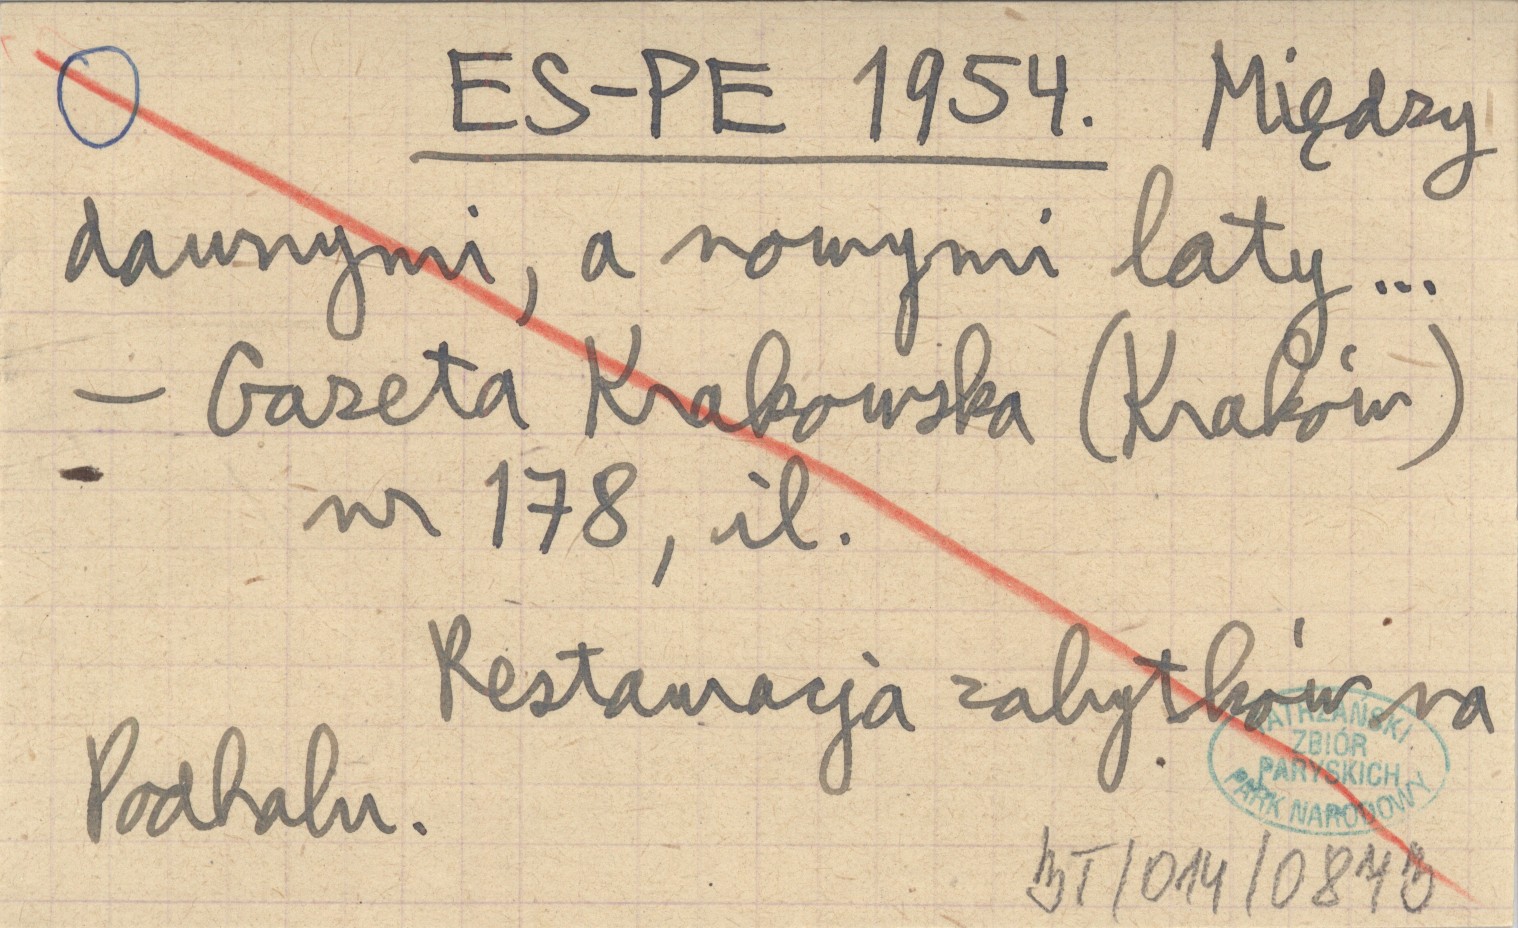 ES-PE 1954. Między
dawnymi, a nowymi laty...
– Gazeta Krakowska (Kraków)
nr 178, il.
Restauracja zabytków na
Podhalu.
TATRZAŃSKI
ZBIÓR
PARYSKICH
PARK NARODOWY
BT/014/0843